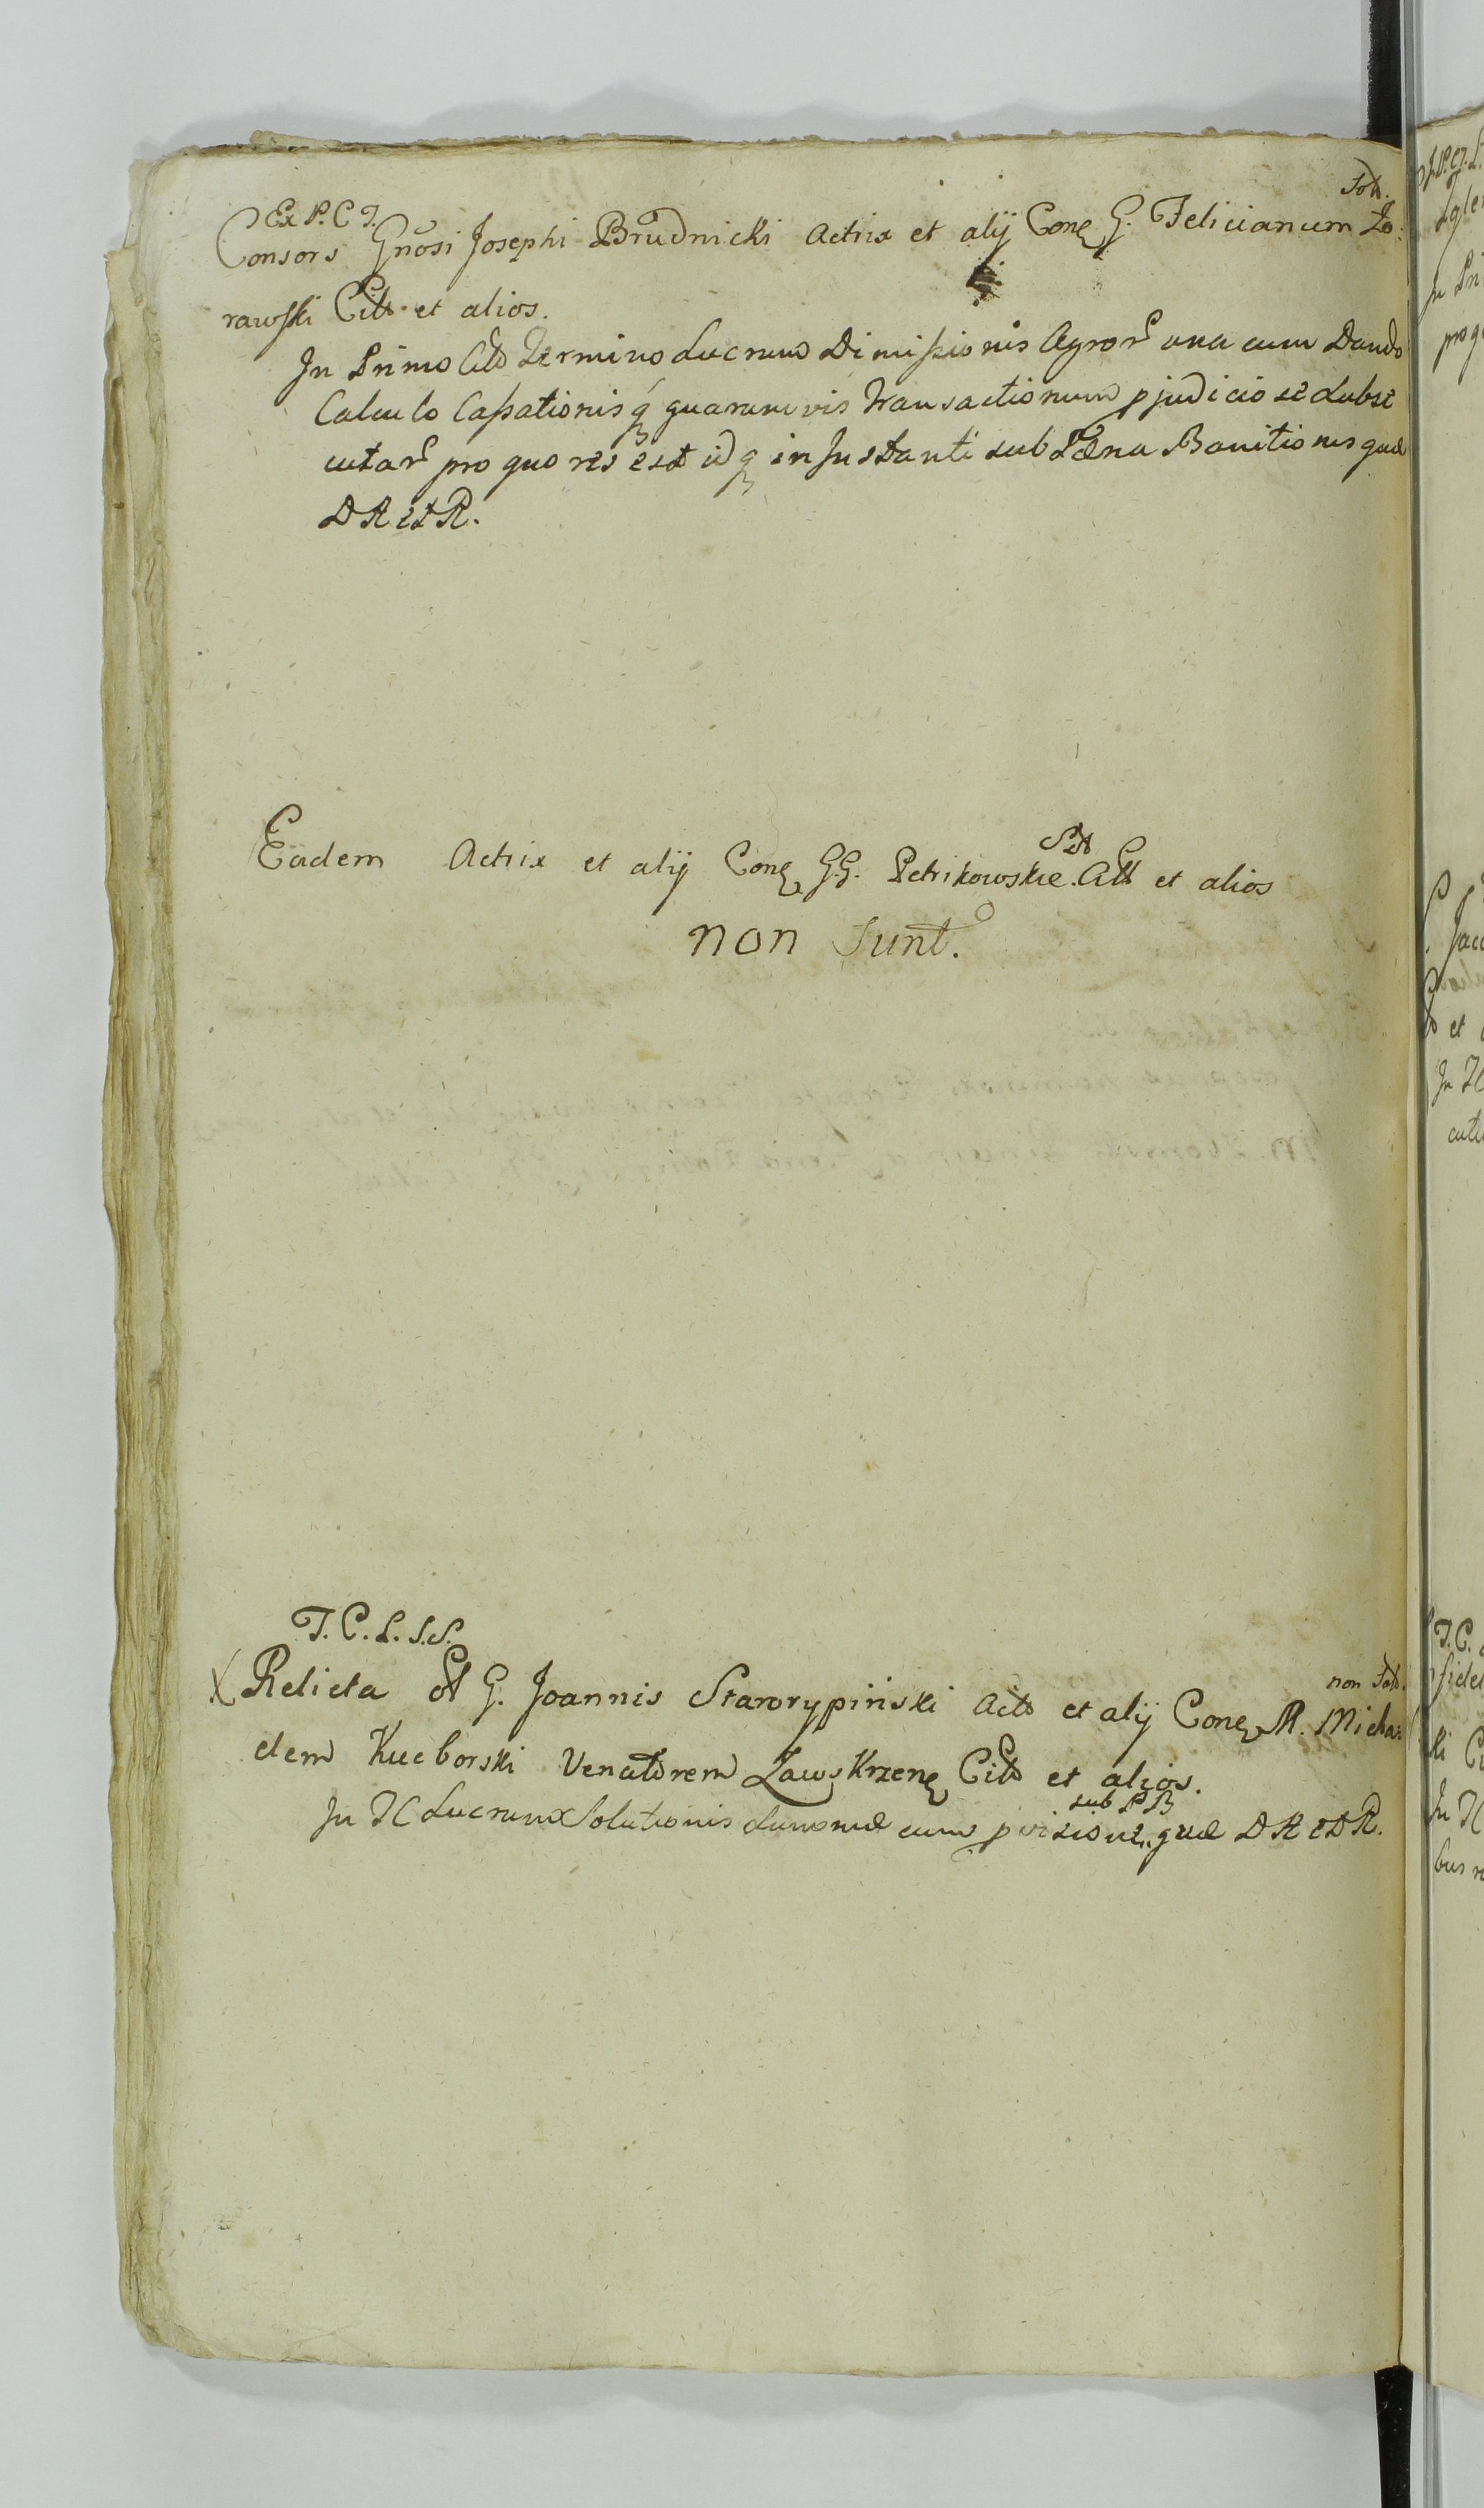 Ex P. C T.
Consors Gnosi Josephi Brudnicki Actrix et alij Conq G. Felicianum Zo:
rawski Citt et alios.
In Primo Citt Termino Lucrum Dimissionis Agror una cum Dando
Calculo Cassationisq quarumvis Transactionum pjudicio se Subse
cutar pro quo res est idq in Instanti sub Pæna Banitionis quæ
D A et R.
Eadem Actrix et alij Conq G.G. Petrikowskie et alios
non sunt.
T. C. L. S.S.
X Relicta Ol G. Joannis Starorypiński Actt et alij Conq M. Micha:
non
elem Kucborski Venatorem Zawskrzenq Citt et alios.
sub P B
In TC Lucrum Solutionis Summæ cum pvisione quæ D A et R.